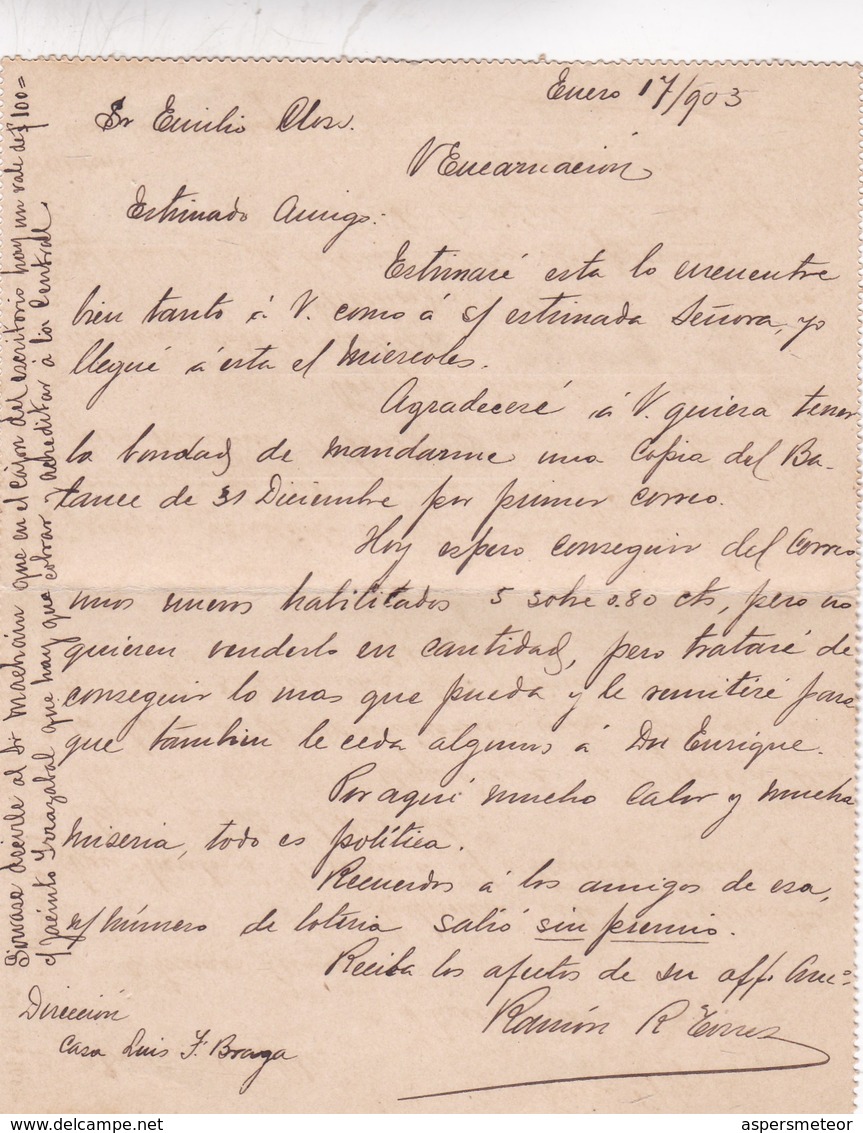 Enero 17/903
Sr Emilio Clos.
VEncarnación
Estimado Amigo:
Estimaré esta lo encuentre
bien tanto á V. como á s/ estimada Señora, yo
llegué á esta el Miercoles.
Agradeceré á V. quiera tener
la bondad de mandarme una Copia del Ba-
lance de 31 Diciembre por primer correo.
Hoy espero conseguir del Correo
unos nuevos habilitados 5 sobre 0.80 cts, pero no
quieren venderlo en cantidad, pero trataré de
conseguir lo mas que pueda y le remitiré para
que tambien le ceda algunos á Dn Enrique.
Por aquí mucho Calor y mucha
miseria, todo es política.
Recuerdos á los amigos de esa,
n/ número de loteria salió sin premio.
Reciba los afectos de su aff. Amo
Ramón R Torres
Dirección
Casa Luis F. Braga
Sirvase decirle al Sr Machain que en el Cajon del escritorio hay un vale de $ 100=
c/ Jacinto Yrrazabal que hay que cobrar acreditar á la Central.
delcampe.net
aspersmeteor